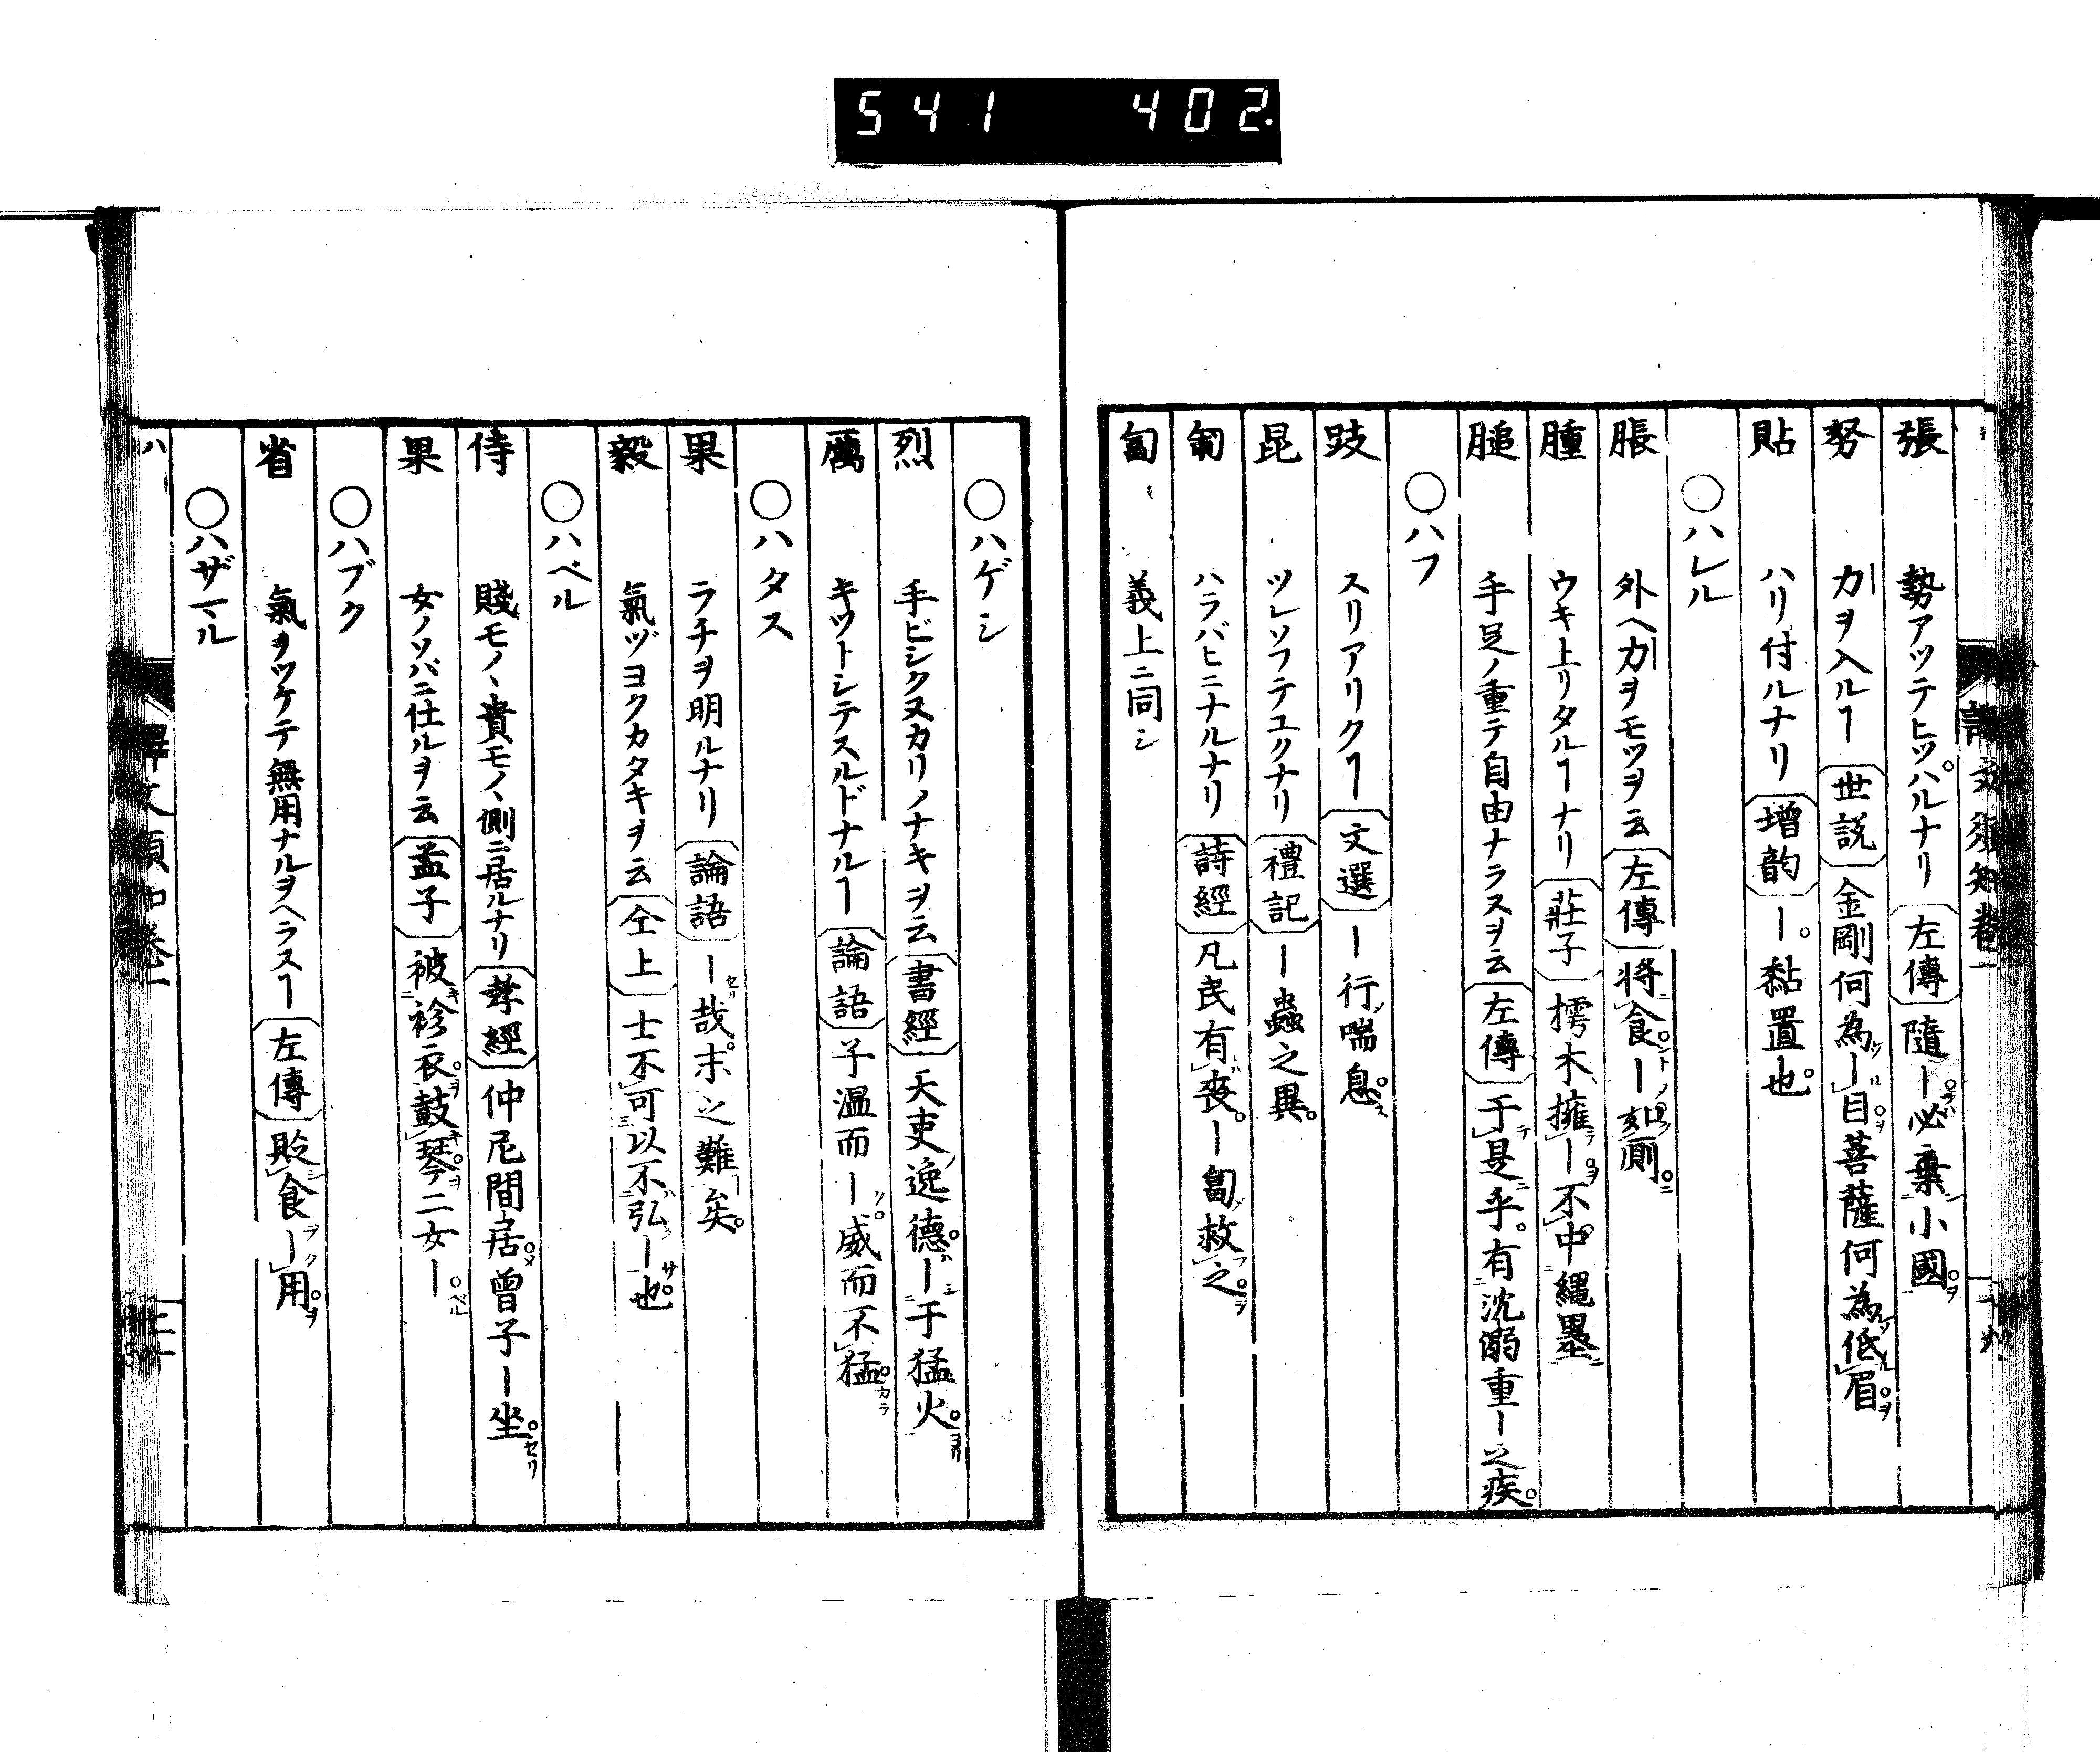 541 402.
張 勢アツテヒツハルナリ 左傳 隨ー必棄小國
努 力ヲ入ルヿ 世説 金剛何為ー目菩薩何為低眉
貼 ハリ付ルナリ 増韵 ー黏置也
○ハレル
脹 外ヘ力ヲモツヲ云 左傳 將食ー如厠
腫 ウキ上リタルヿナリ 莊子 樗木擁ー不中繩墨
膇 手足ノ重テ自由ナラヌヲ云 左傳 于是乎有沈溺重ー之疾
○ハフ
跂 スリアリクヿ 文選 ー行喘息
昆 ツレソフテユクナリ 禮記 ー蟲之異
匍 ハラバヒニナルナリ 詩經 凡民有喪ー匐救之
匐 義上ニ同シ
○ハゲシ
烈 手ビシクヌカリノナキヲ云 書經 天吏逸德ー于猛火
厲 キツトシテスルドナルヿ 論語 子温而ー威而不猛
○ハタス
果 ラチヲ明ルナリ 論語 ー哉末之難矣
毅 氣ヅヨクカタキヲ云 仝上 士不可以不弘ー也
○ハベル
侍 賤モノヽ貴モノヽ側ニ居ルナリ 孝經 仲尼間居曾子ー坐
果 女ノソバニ仕ルヲ云 孟子 被袗衣鼓琴二女ー
○ハブク
省 氣ヲツケテ無用ナルヲヘラスヿ 左傳 貶食ー用
○ハザマル
ハ 譯文須知卷一